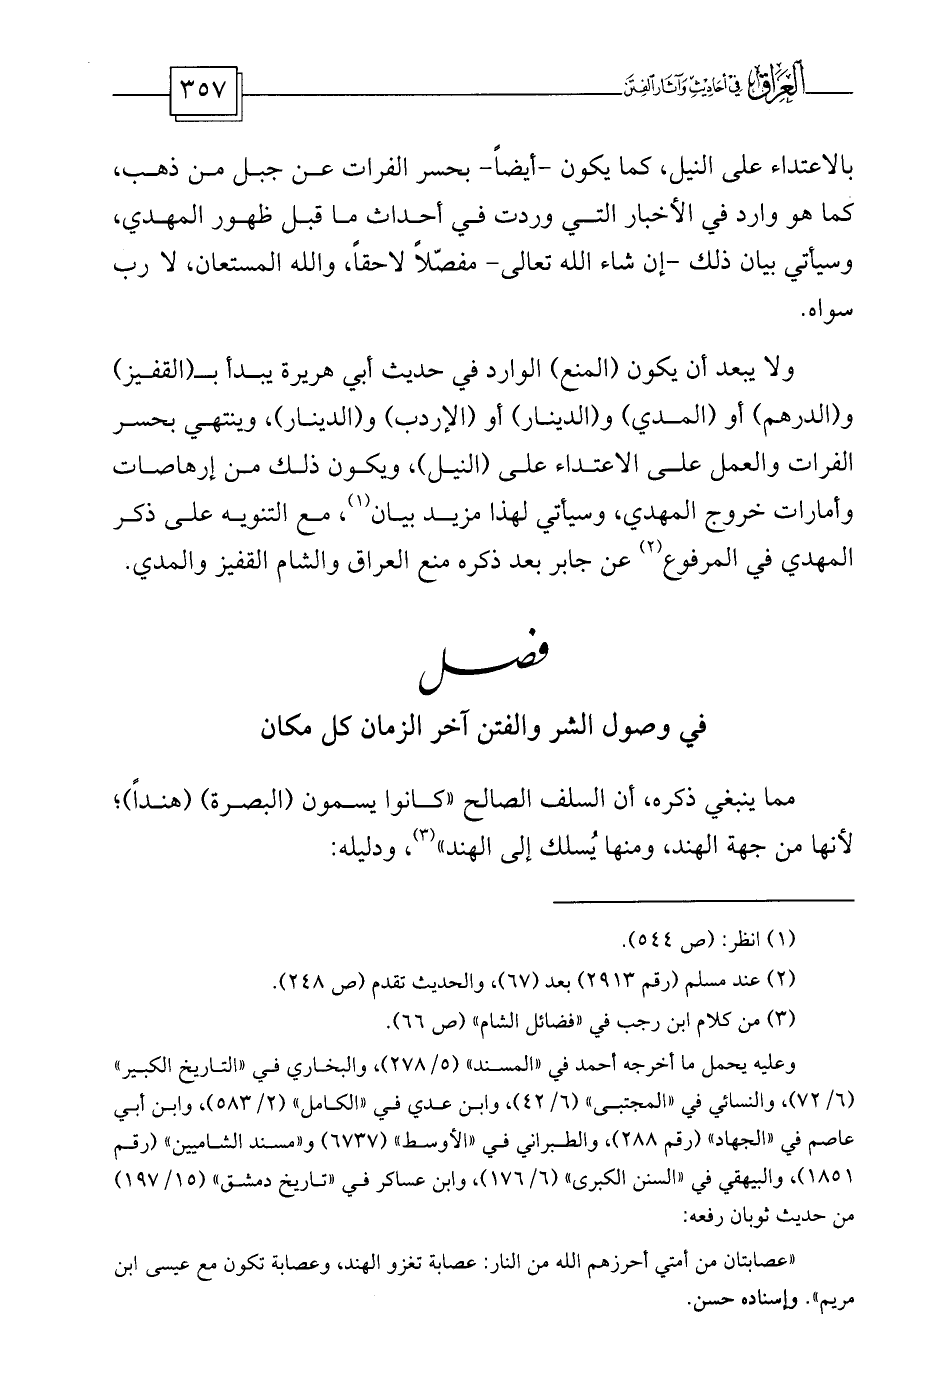 العراق في أحاديث وآثار الفتن
٣٥٧
بالاعتداء على النيل، كما يكون -أيضاً- بحسر الفرات عن جبل من ذهب،
كما هو وارد في الأخبار التي وردت في أحداث ما قبل ظهور المهدي،
وسيأتي بيان ذلك -إن شاء الله تعالى- مفصّلاً لاحقاً، والله المستعان، لا رب
سواه.
ولا يبعد أن يكون (المنع) الوارد في حديث أبي هريرة يبدأ بـ(القفيز)
و(الدرهم) أو (المدي) و(الدينار) أو (الإردب) و(الدينار)، وينتهي بحسر
الفرات والعمل على الاعتداء على (النيل)، ويكون ذلك من إرهاصات
وأمارات خروج المهدي، وسيأتي لهذا مزيد بيان(١)، مع التنويه على ذكر
المهدي في المرفوع(٢) عن جابر بعد ذكره منع العراق والشام القفيز والمدي.
فصل
في وصول الشر والفتن آخر الزمان كل مكان
مما ينبغي ذكره، أن السلف الصالح «كانوا يسمون (البصرة) (هنداً)؛
لأنها من جهة الهند، ومنها يُسلك إلى الهند»(٣)، ودليله:
(١) انظر: (ص ٥٤٤).
(٢) عند مسلم (رقم ٢٩١٣) بعد (٦٧)، والحديث تقدم (ص ٢٤٨).
(٣) من كلام ابن رجب في «فضائل الشام» (ص ٦٦).
وعليه يحمل ما أخرجه أحمد في «المسند» (٥/ ٢٧٨)، والبخاري في «التاريخ الكبير»
(٦/ ٧٢)، والنسائي في «المجتبى» (٦/ ٤٢)، وابن عدي في «الكامل» (٢/ ٥٨٣)، وابن أبي
عاصم في «الجهاد» (رقم ٢٨٨)، والطبراني في «الأوسط» (٦٧٣٧) و«مسند الشاميين» (رقم
١٨٥١)، والبيهقي في «السنن الكبرى» (٦/ ١٧٦)، وابن عساكر في «تاريخ دمشق» (١٥/ ١٩٧)
من حديث ثوبان رفعه:
«عصابتان من أمتي أحرزهم الله من النار: عصابة تغزو الهند، وعصابة تكون مع عيسى ابن
مريم». وإسناده حسن.